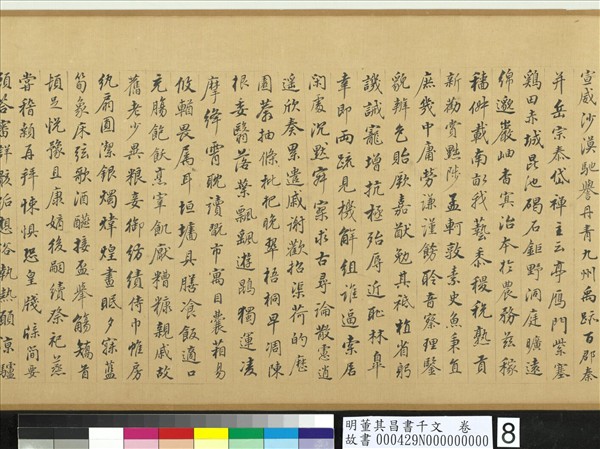 宣威沙漠馳譽丹青九州禹跡百郡秦
并岳宗泰岱禪主云亭鴈門紫塞
鷄田赤城昆池碣石鉅野洞庭曠遠
綿邈巖岫杳冥治本於農務茲稼
穡俶載南畝我藝黍稷稅熟貢
新勸賞黜陟孟軻敦素史魚秉直
庶幾中庸勞謙謹勅聆音察理鑒
貌辨色貽厥嘉猷勉其祗植省躬
譏誡寵增抗極殆辱近恥林皐
幸即兩疏見機解組誰逼索居
閑處沉默寂寥求古尋論散慮逍
遙欣奏累遣慼謝歡招渠荷的歷
園莽抽條枇杷晚翠梧桐早凋陳
根委翳落葉飄颻遊鵾獨運凌
摩絳霄耽讀翫市寓目囊箱易
攸輶畏属耳垣墉具膳飡飯適口
充腸飽飫烹宰飢厭糟糠親戚故
舊老少異粮妾御紡績侍巾帷房
紈扇圓潔銀燭煒煌晝眠夕寐藍
筍象床弦歌酒讌接盃舉觴矯首
頓足悅豫且康嫡後嗣續祭祀蒸
嘗稽顙再拜悚懼恐皇牋牒簡要
顧答審詳骸垢想浴執熱願涼驢
明董其昌書千文 卷
故書000429N000000000
8